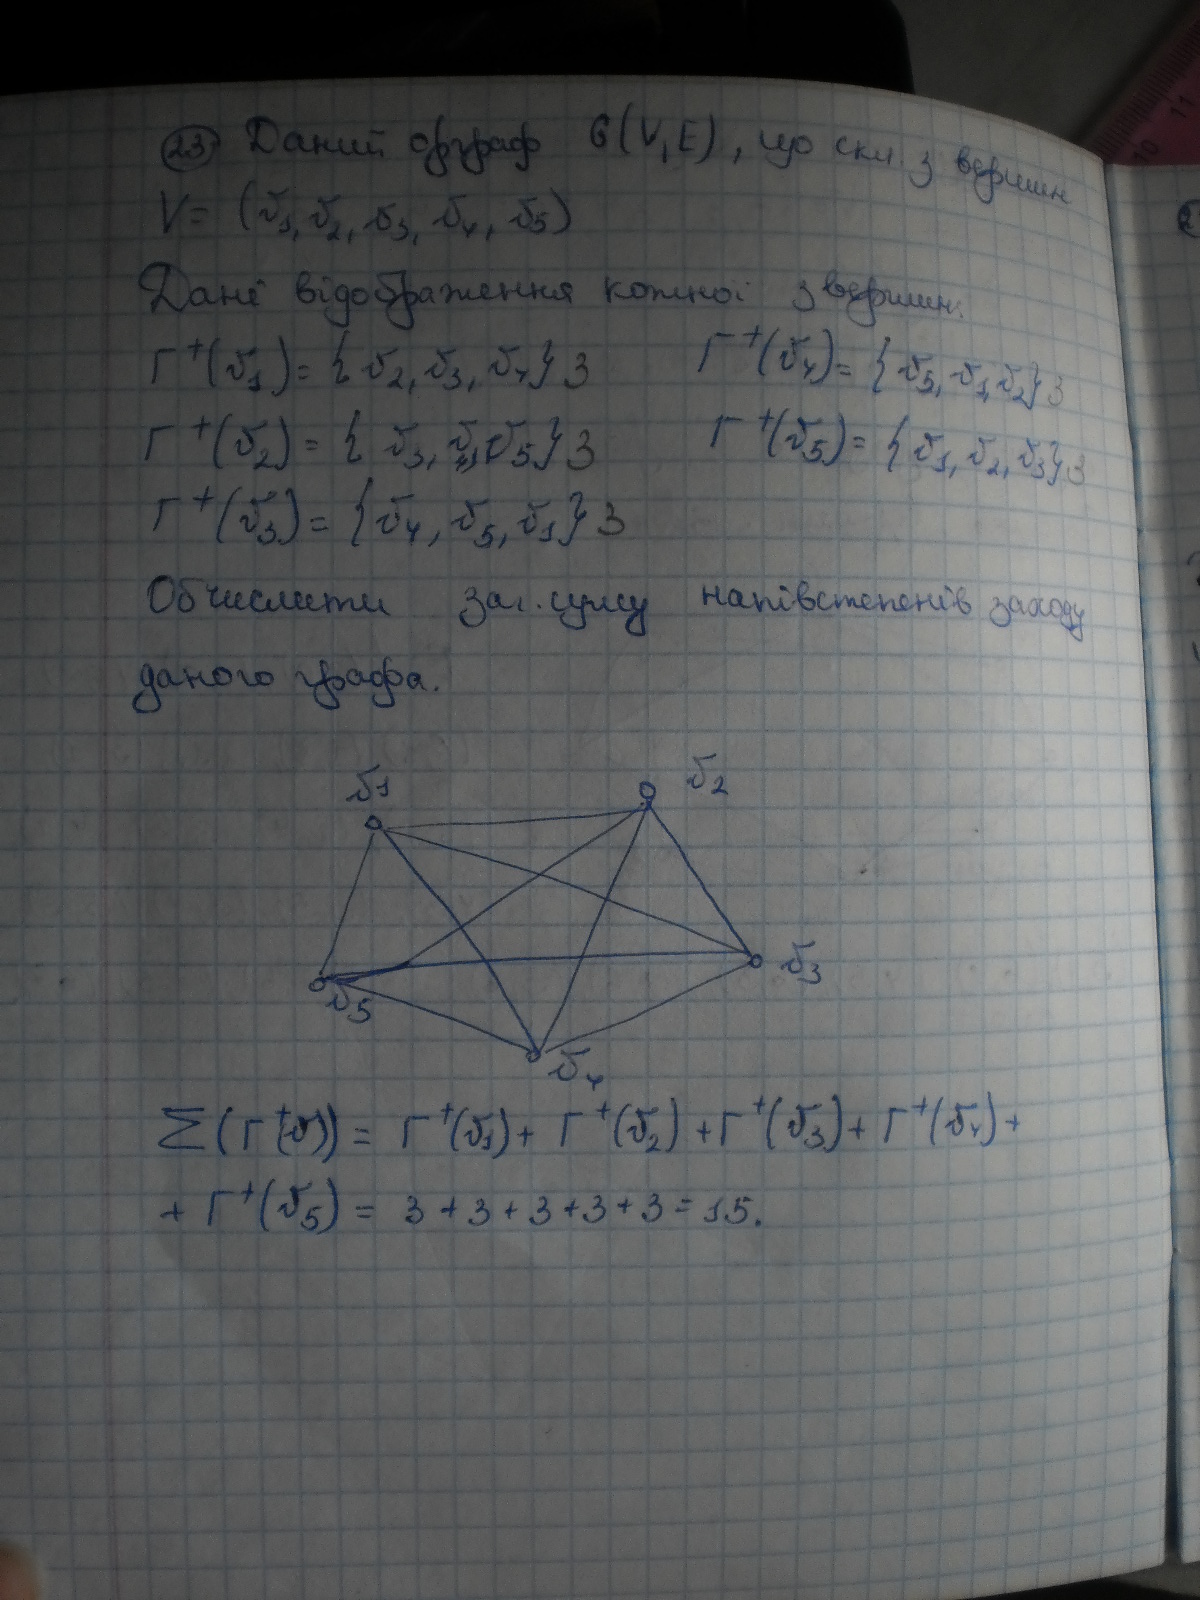 23 Даний орграф G(V,E), що скл. з вершин
V = (v1, v2, v3, v4, v5)
Дані відображення кожної з вершин:
Г⁺(v1) = {v2, v3, v4} 3 Г⁺(v4) = {v5, v1, v2} 3
Г⁺(v2) = {v3, v4, v5} 3 Г⁺(v5) = {v1, v2, v3} 3
Г⁺(v3) = {v4, v5, v1} 3
Обчислити заг. суму напівстепенів заходу
даного графа.
v1 v2
v3
v5
v4
Σ(Г⁺(v)) = Г⁺(v1) + Г⁺(v2) + Г⁺(v3) + Г⁺(v4) +
+ Г⁺(v5) = 3 + 3 + 3 + 3 + 3 = 15.
10 11